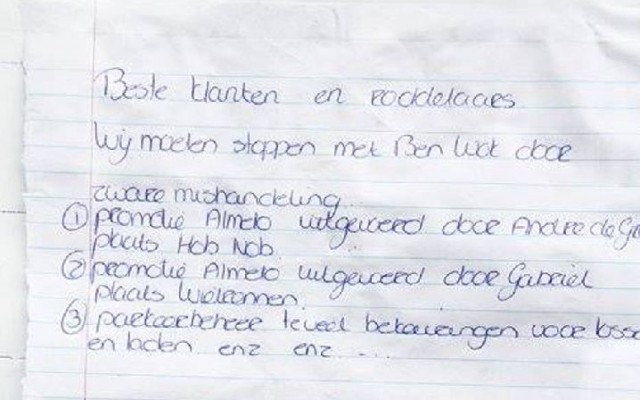 Beste klanten en roddelaars
Wij moeten stoppen met Ben Wok door
zware mishandeling...
① promotie Almelo uitgevoerd door Andre de Gr
plaats Hob Nob.
② promotie Almelo uitgevoerd door Gabriel
plaats Wierden
③ parkeerbeheer teveel bekeuringen voor
en laden enz enz ....